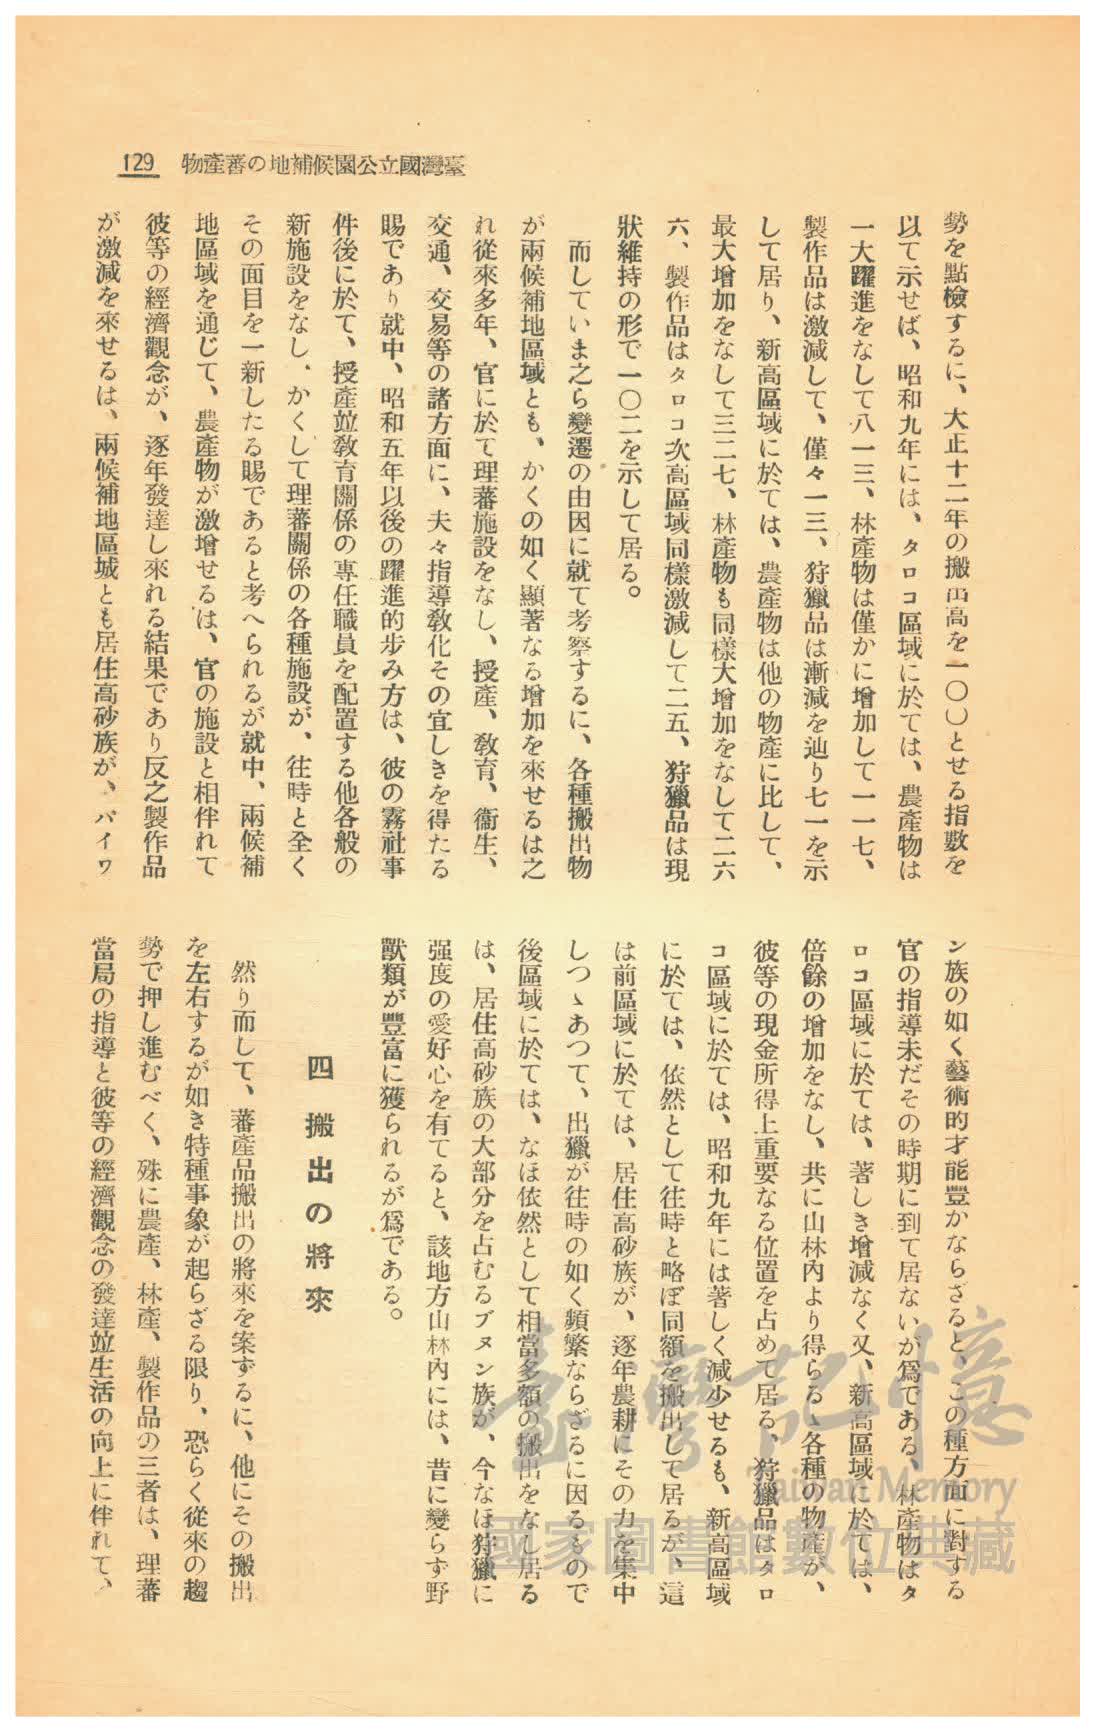 129　物產蕃の地補候園公立國灣臺
勢を點檢するに、大正十二年の搬出高を一〇〇とせる指數を
以て示せば、昭和九年には、タロコ區域に於ては、農產物は
一大躍進をなして八一三、林產物は僅かに增加して一一七、
製作品は激減して、僅々一三、狩獵品は漸減を辿り七一を示
して居り、新高區域に於ては、農產物は他の物產に比して、
最大增加をなして三二七、林產物も同樣大增加をなして二六
六、製作品はタロコ次高區域同樣激減して二五、狩獵品は現
狀維持の形で一〇二を示して居る。
而していま之ら變遷の由因に就て考察するに、各種搬出物
が兩候補地區域とも、かくの如く顯著なる增加を來せるは之
れ從來多年、官に於て理蕃施設をなし、授產、敎育、衞生、
交通、交易等の諸方面に、夫々指導敎化その宜しきを得たる
賜であり就中、昭和五年以後の躍進的步み方は、彼の霧社事
件後に於て、授產竝敎育關係の專任職員を配置する他各般の
新施設をなし、かくして理蕃關係の各種施設が、往時と全く
その面目を一新したる賜であると考へられるが就中、兩候補
地區域を通じて、農產物が激增せるは、官の施設と相伴れて
彼等の經濟觀念が、逐年發達し來れる結果であり反之製作品
が激減を來せるは、兩候補地區域とも居住高砂族が、パイワ
ン族の如く藝術的才能豐かならざると、この種方面に對する
官の指導未だその時期に到て居ないが爲である、林產物はタ
ロコ區域に於ては、著しき增減なく又、新高區域に於ては、
倍餘の增加をなし、共に山林內より得らるゝ各種の物產が、
彼等の現金所得上重要なる位置を占めて居る、狩獵品はタロ
コ區域に於ては、昭和九年には著しく減少せるも、新高區域
に於ては、依然として往時と略ぼ同額を搬出して居るが、這
は前區域に於ては、居住高砂族が、逐年農耕にその力を集中
しつゝあつて、出獵が往時の如く頻繁ならざるに因るもので
後區域に於ては、なほ依然として相當多額の搬出をなし居る
は、居住高砂族の大部分を占むるブヌン族が、今なほ狩獵に
强度の愛好心を有てると、該地方山林內には、昔に變らず野
獸類が豐富に獲られるが爲である。
四　搬出の將來
然り而して、蕃產品搬出の將來を案ずるに、他にその搬出
を左右するが如き特種事象が起らざる限り、恐らく從來の趨
勢で押し進むべく、殊に農產、林產、製作品の三者は、理蕃
當局の指導と彼等の經濟觀念の發達竝生活の向上に伴れて、
臺灣記憶
Taiwan Memory
國家圖書館數位典藏